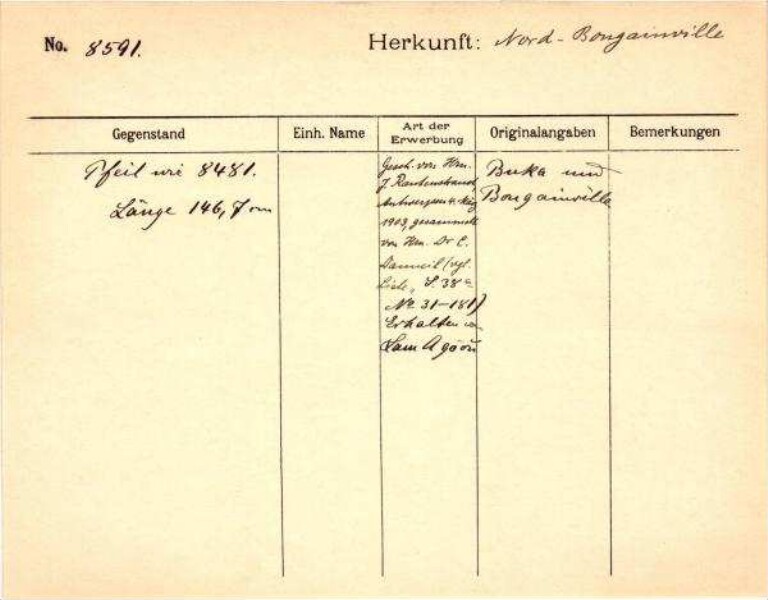 No. 8591.
Herkunft: Nord-Bougainville
Gegenstand
Einh. Name
Art der Erwerbung
Originalangaben
Bemerkungen
Pfeil wie 8481.
Länge 146,7 cm
Gesch. von Hrn.
J. Rautenstrauch,
Antwerpen 4. Aug
1903, gesammelt
von Hrn. Dr C.
Danneil (vgl.
Liste, S. 38
No 31–181)
Erhalten von
Buka und
Bougainville